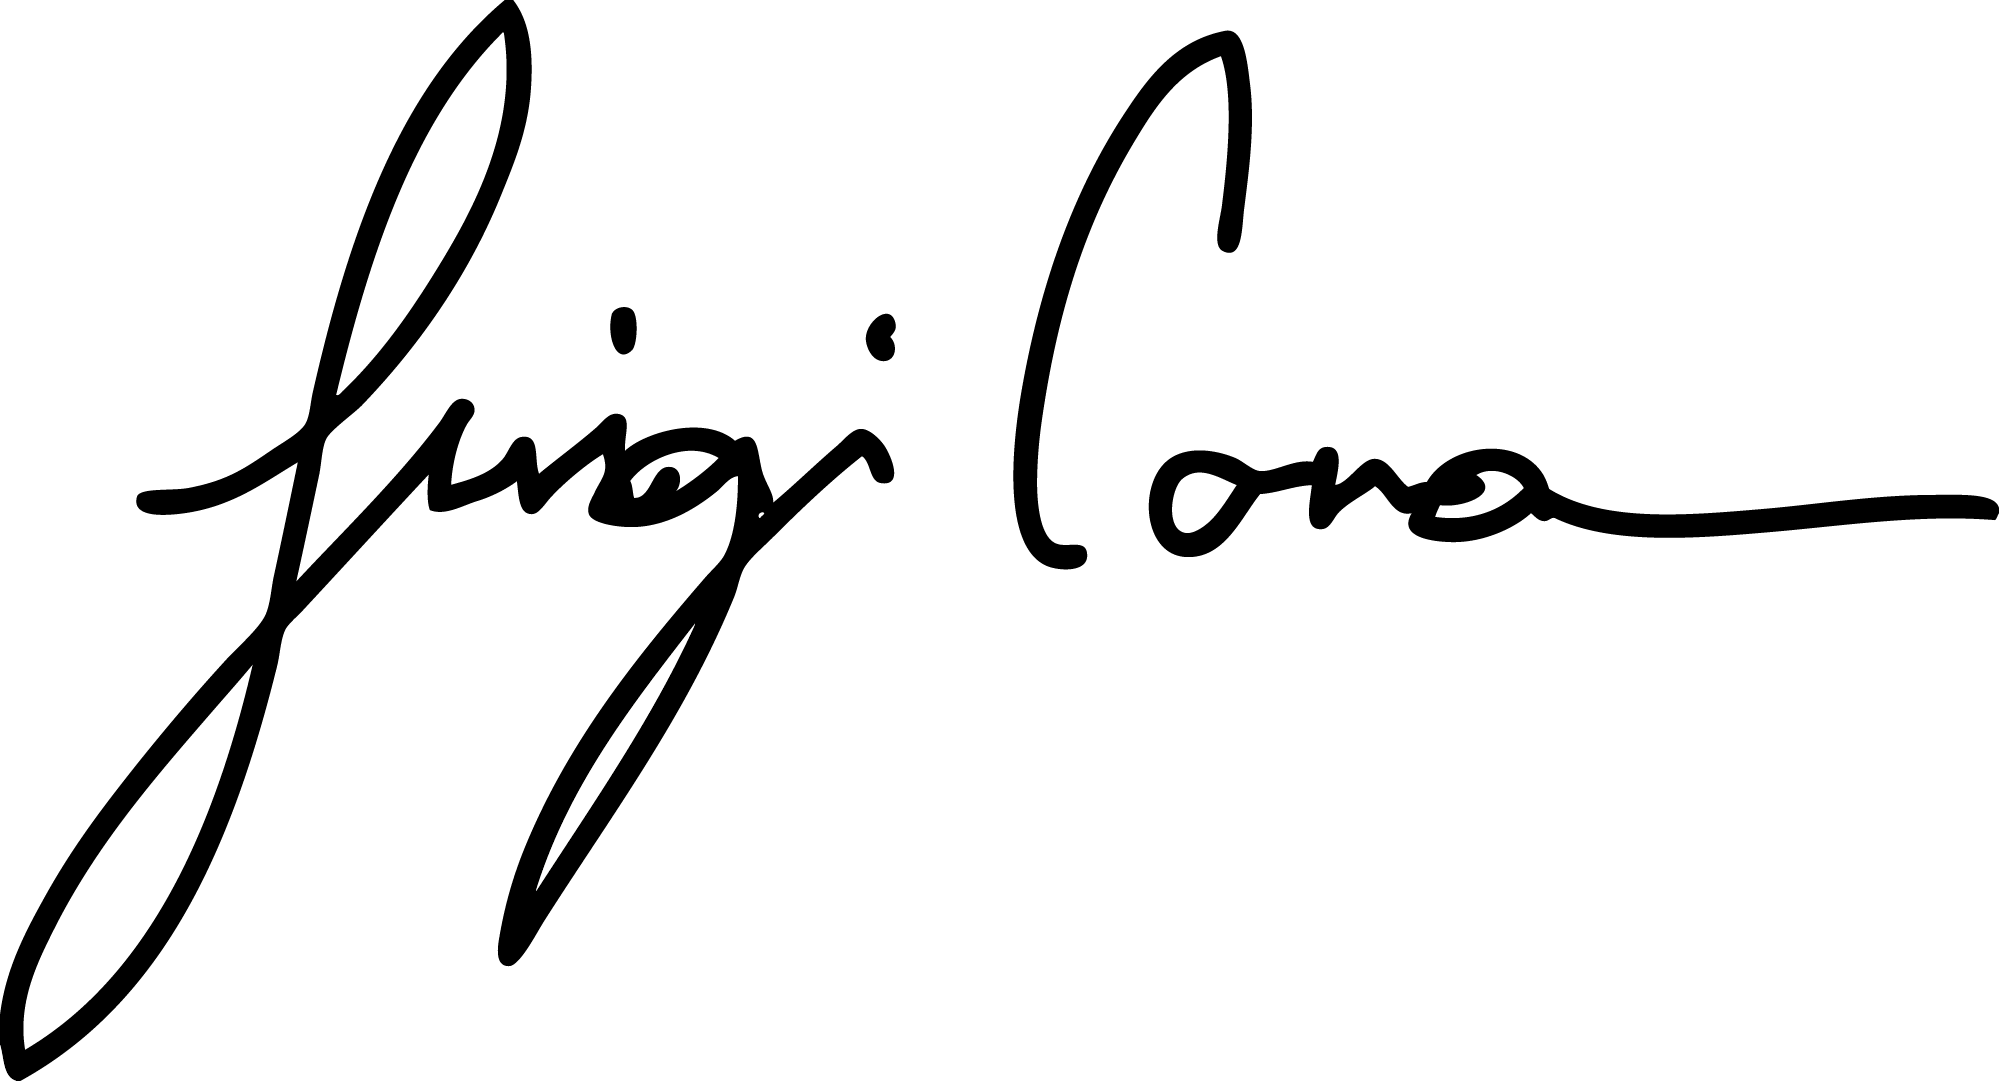 Luigi Cona